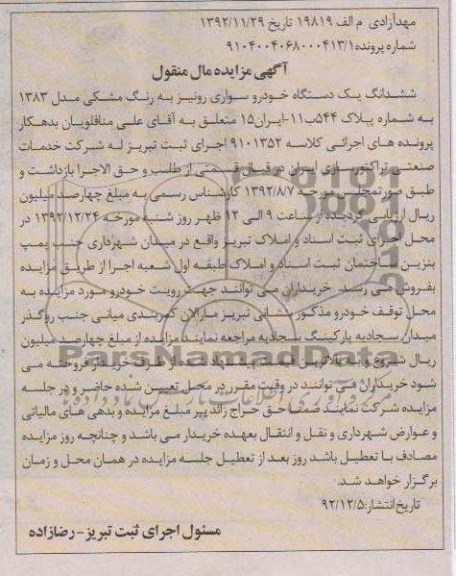 مهدآزادی م الف ۱۹۸۱۹ تاریخ ۱۳۹۲/۱۱/۲۹
شماره پرونده۹۱۰۴۰۰۴۰۶۸۰۰۰۴۱۳/۱
آگهی مزایده مال منقول
ششدانگ یک دستگاه خودرو سواری رونیز به رنگ مشکی مدل ۱۳۸۳
به شماره پلاک ۵۴۴ب۱۱-ایران۱۵ متعلق به آقای علی منافلویان بدهکار
پرونده های اجرائی کلاسه ۹۱۰۱۳۵۲ اجرای ثبت تبریز له شرکت خدمات
صنعتی تراکتورسازی ایران در قبال قسمتی از طلب و حق الاجرا بازداشت و
طبق صورتمجلس مورخه ۱۳۹۲/۸/۷ کارشناس رسمی به مبلغ چهارصد میلیون
ریال ارزیابی گردیده از ساعت ۹ الی ۱۲ ظهر روز شنبه مورخه ۱۳۹۲/۱۲/۲۴ در
محل اجرای ثبت اسناد و املاک تبریز واقع در میدان شهرداری جنب پمپ
بنزین ساختمان ثبت اسناد و املاک طبقه اول شعبه اجرا از طریق مزایده
بفروش می رسد. خریداران می توانند جهت رویت خودرو مورد مزایده به
محل توقف خودرو مذکور بنشانی تبریز مارالان کمربندی میانی جنب روگذر
میدان سجادیه پارکینگ سجادیه مراجعه نمایند مزایده از مبلغ چهارصد میلیون
ریال شروع و به بالاترین قیمت پیشنهاد شده از طرف خریدار فروخته می
شود خریداران می توانند در وقت مقرر در محل تعیین شده حاضر و در جلسه
مزایده شرکت نمایند ضمنا حق حراج زائد بر مبلغ مزایده و بدهی های مالیاتی
و عوارض شهرداری و نقل و انتقال بعهده خریدار می باشد و چنانچه روز مزایده
مصادف با تعطیل باشد روز بعد از تعطیل جلسه مزایده در همان محل و زمان
برگزار خواهد شد.
تاریخ انتشار:۹۲/۱۲/۵
مسئول اجرای ثبت تبریز-رضازاده
ParsNamadData